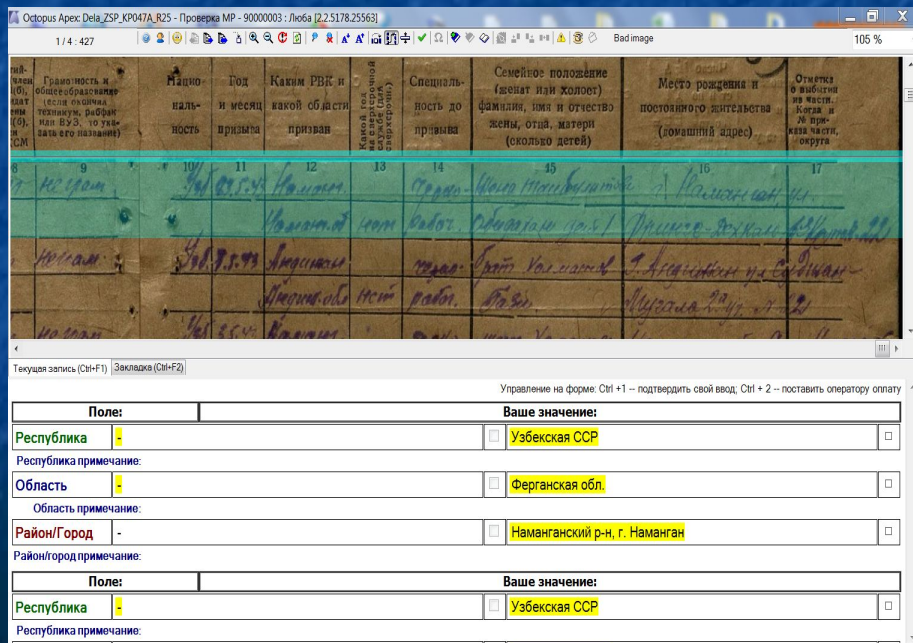 Octopus Apex: Dela_ZSP_KP047A_R25 - Проверка МР - 90000003 : Люба [2.2.5178.25563]
1 / 4 : 427
Bad image
105 %
Грамотность и общеобразование (если окончил техникум, рабфак или ВУЗ, то указать его название)
Национальность
Год и месяц призыва
Каким РВК и какой области призван
Какой год на сверхсрочной службе (для сверхсрочн.)
Специальность до призыва
Семейное положение (женат или холост) фамилия, имя и отчество жены, отца, матери (сколько детей)
Место рождения и постоянного жительства (домашний адрес)
Отметка о выбытии из части. Когда и № приказа части, округа
8 9 10 11 12 13 14 15 16 17
неграм. Узб. Наманг. Жена г. Наманган ул.
Наманг.об нет рабоч. 22
неграм. Узб. 8.5.43 Андижан брат Холматов г. Андижан ул
Андиж.обл нет рабоч.
Текущая запись (Ctrl+F1) Закладка (Ctrl+F2)
Управление на форме: Ctrl +1 -- подтвердить свой ввод; Ctrl + 2 -- поставить оператору оплату
Поле: Ваше значение:
Республика - Узбекская ССР
Республика примечание:
Область - Ферганская обл.
Область примечание:
Район/Город - Наманганский р-н, г. Наманган
Район/город примечание:
Поле: Ваше значение:
Республика - Узбекская ССР
Республика примечание: